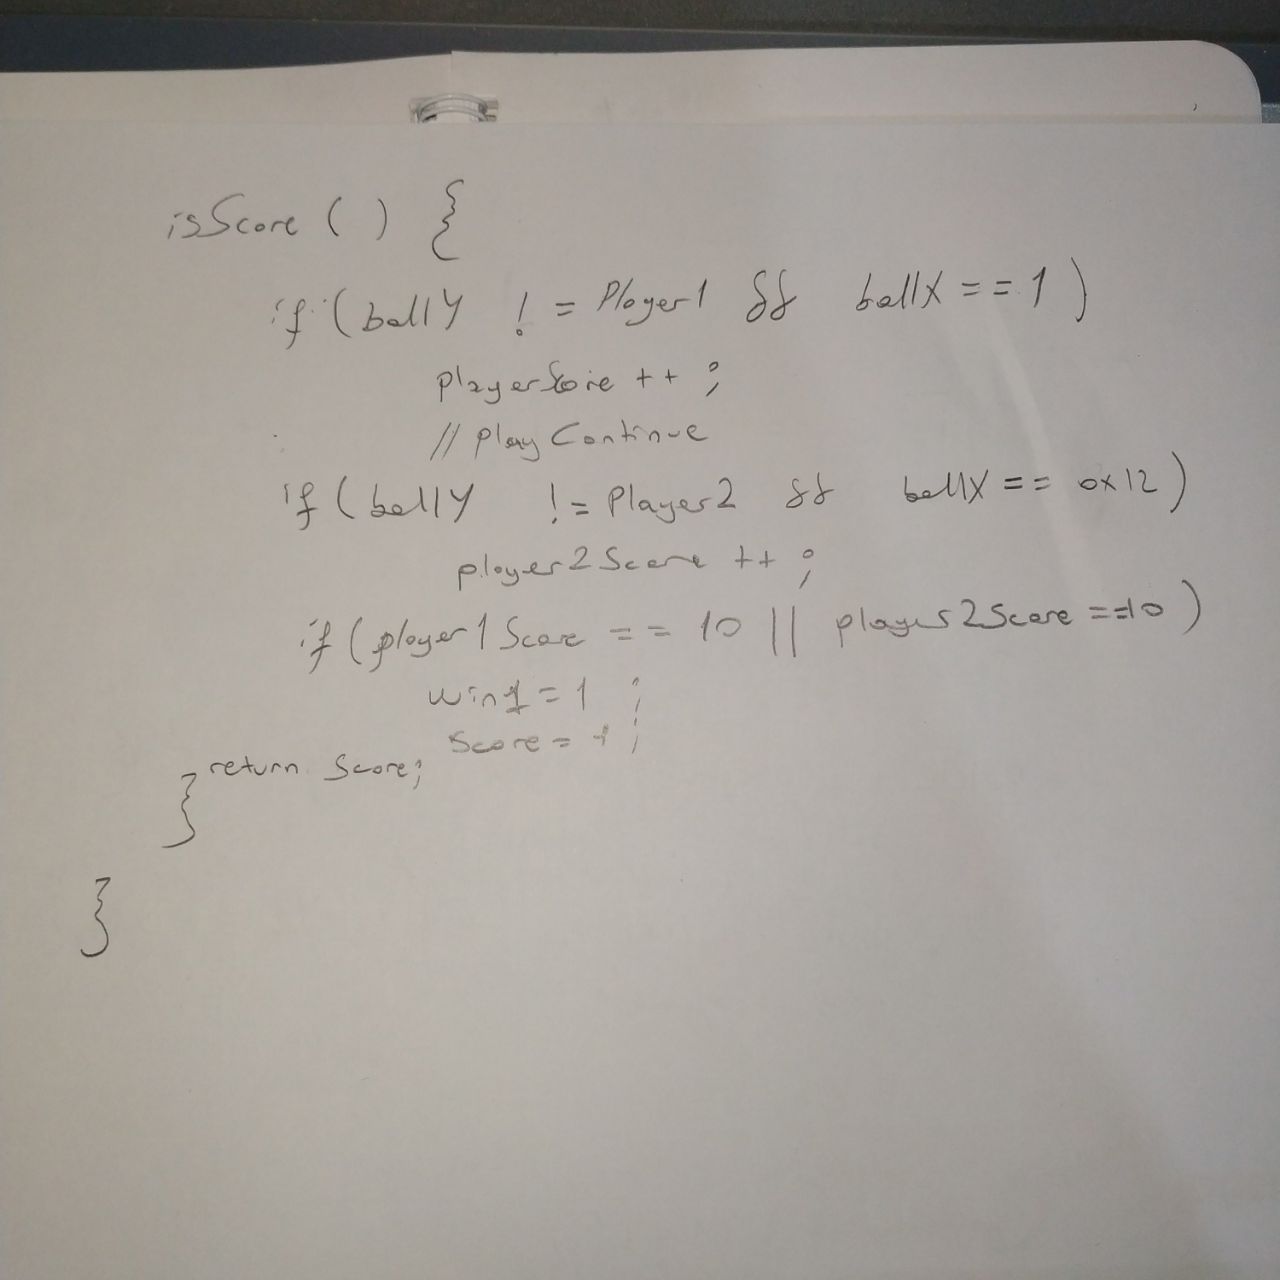 isScore ( ) {
if ( ballY != Player1 && ballX == 1 )
playerScore ++ ;
// play Continue
if ( ballY != Player2 && ballX == 0x12 )
player2Score ++ ;
if ( player1Score == 10 || player2Score == 10 )
win1 = 1 ;
Score = 1 ;
return Score;
}
}